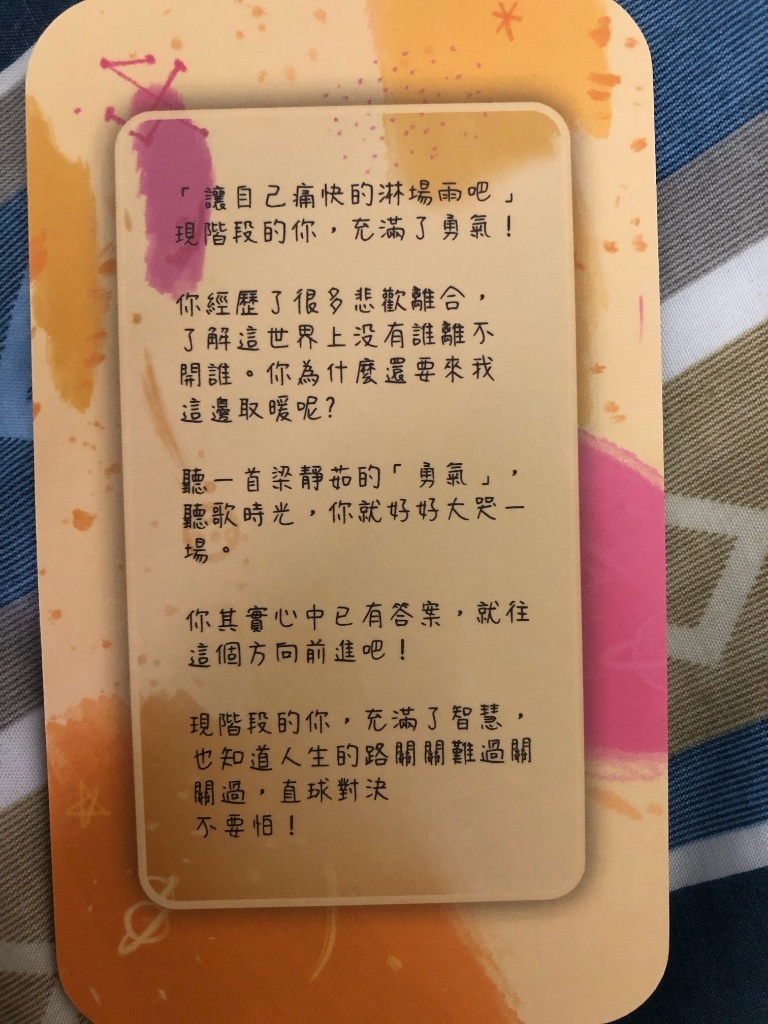 「讓自己痛快的淋場雨吧」
現階段的你，充滿了勇氣！
你經歷了很多悲歡離合，
了解這世界上沒有誰離不
開誰。你為什麼還要來我
這邊取暖呢？
聽一首梁靜茹的「勇氣」，
聽歌時光，你就好好大哭一
場。
你其實心中已有答案，就往
這個方向前進吧！
現階段的你，充滿了智慧，
也知道人生的路關關難過關
關過，直球對決
不要怕！